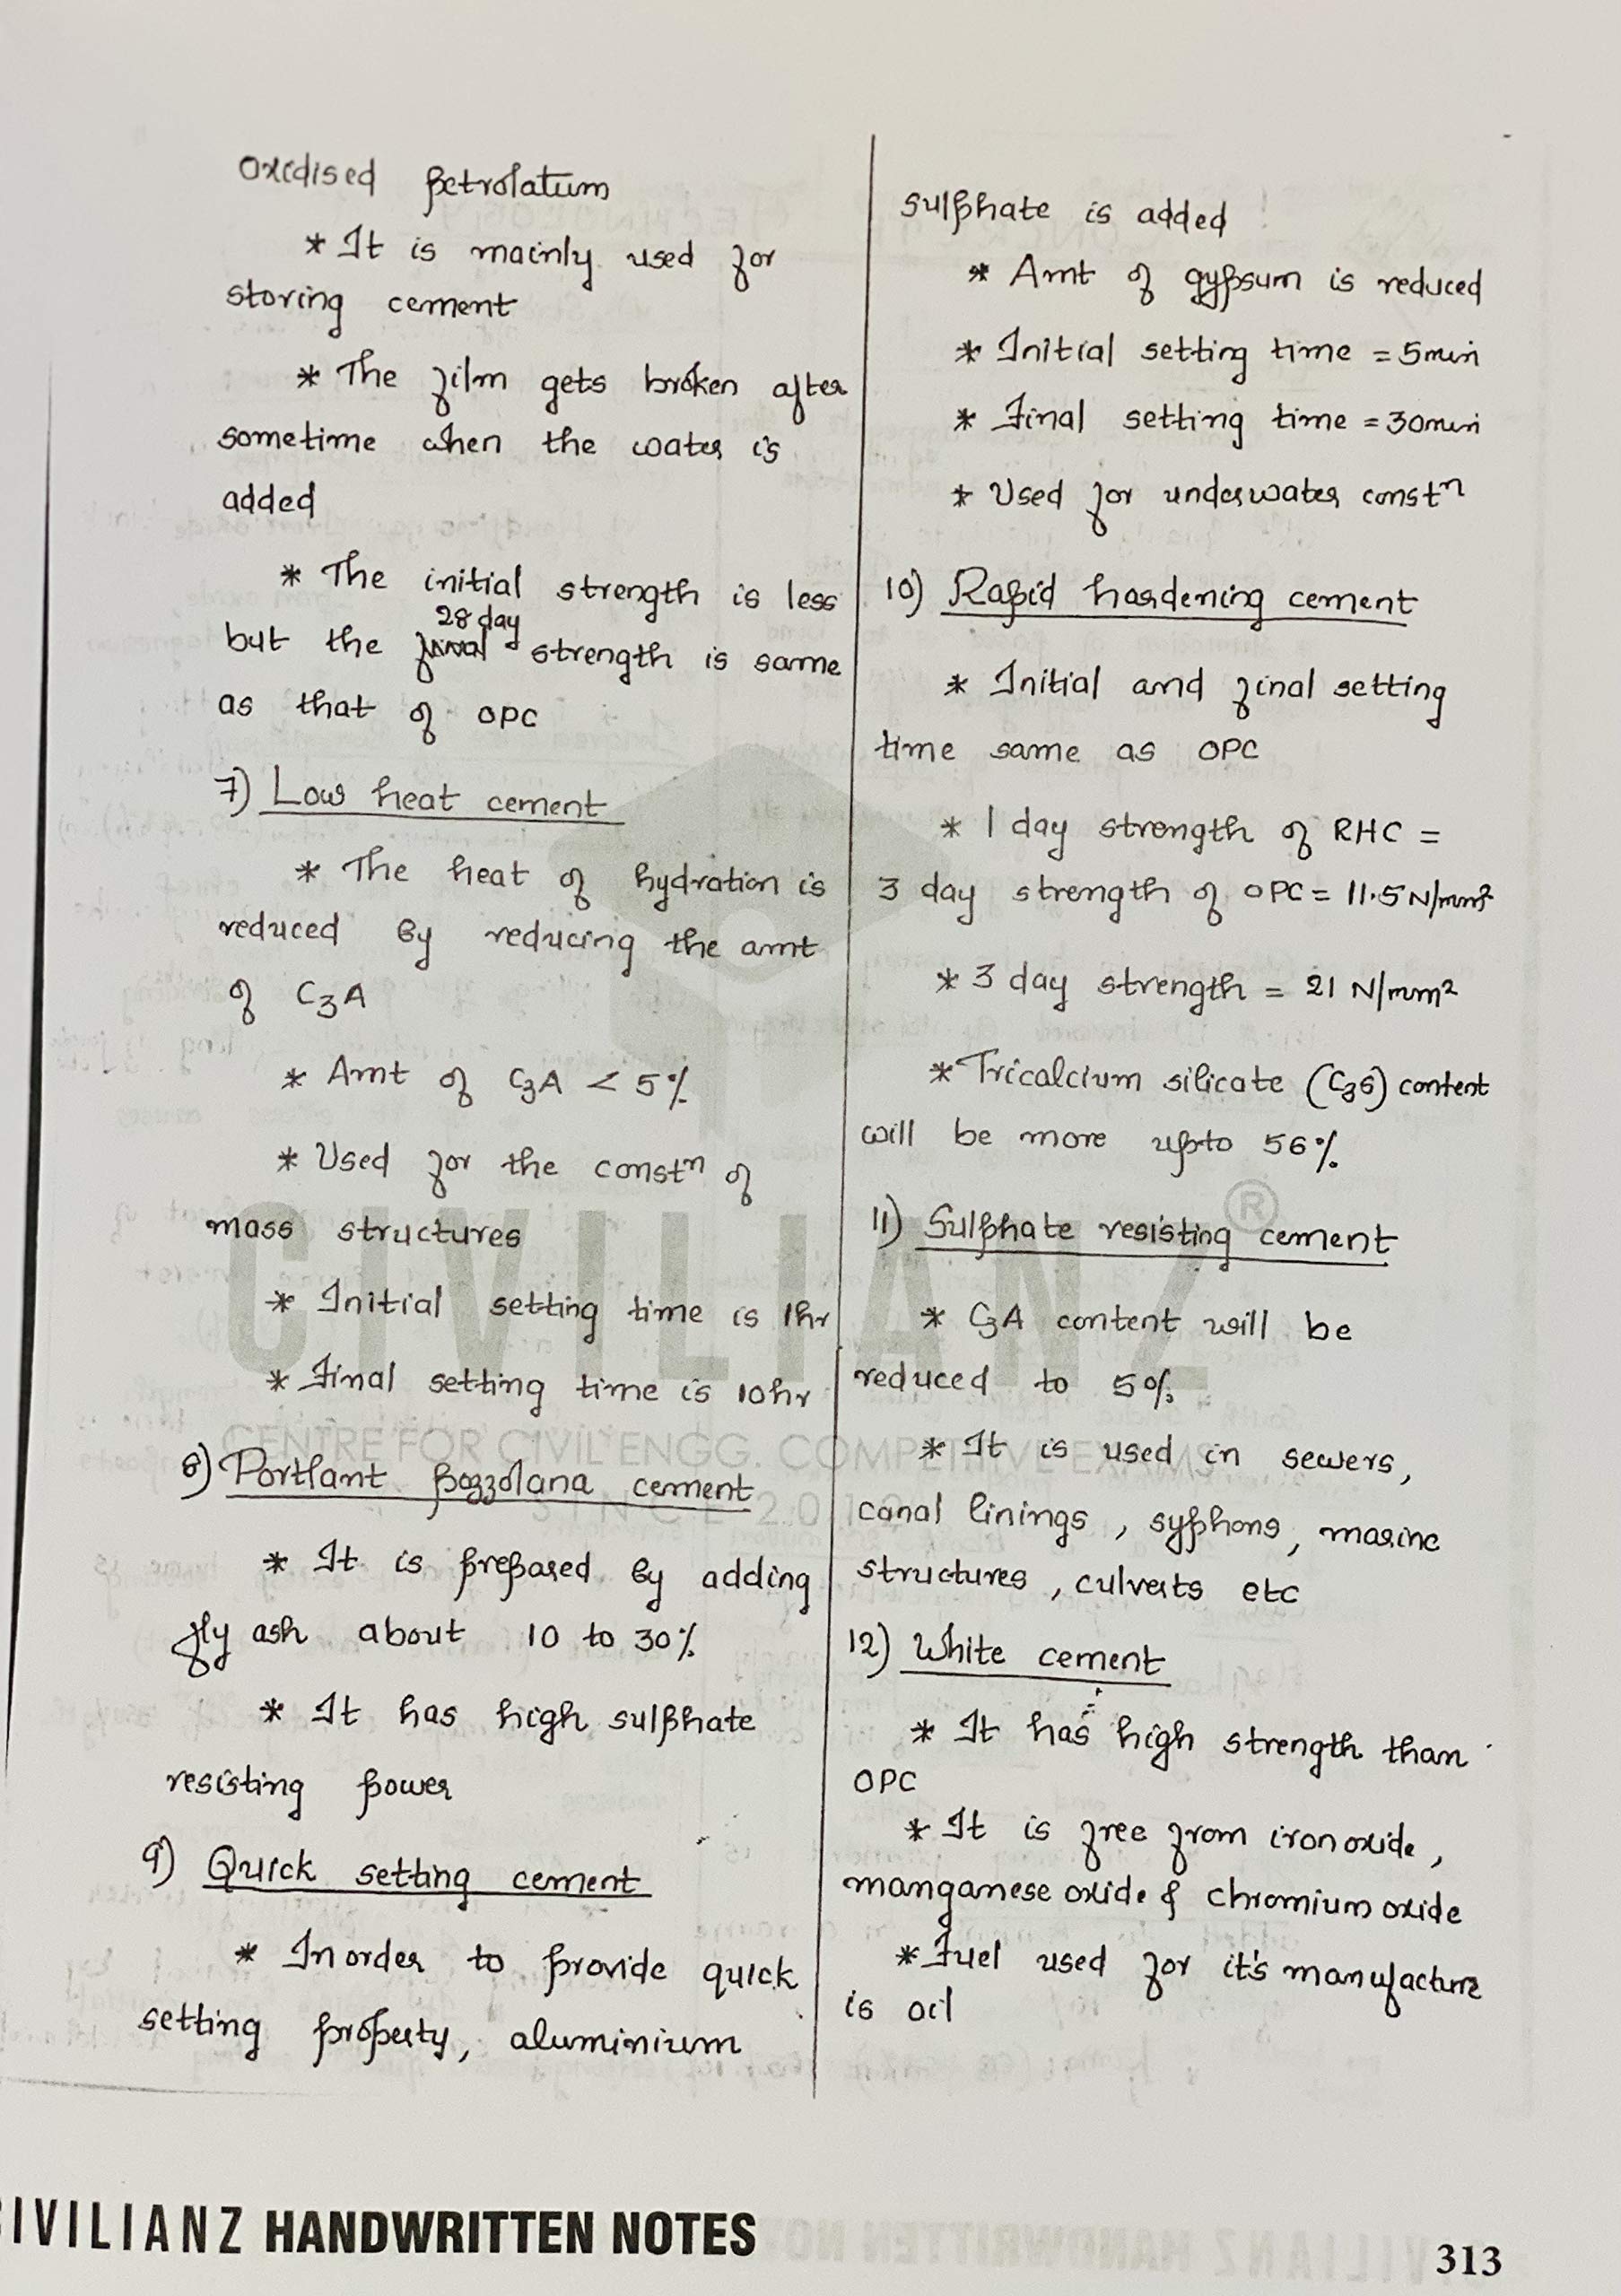 oxidised petrolatum
* It is mainly used for
storing cement
* The film gets broken after
sometime when the water is
added
* The initial strength is less
28 day
but the final strength is same
as that of OPC
7) Low heat cement
* The heat of hydration is
reduced by reducing the amt
of C3A
* Amt of C3A < 5%
* Used for the constn of
mass structures
* Initial setting time is 1hr
* Final setting time is 10hr
8) Portlant pozzolana cement
* It is prepared by adding
fly ash about 10 to 30%
* It has high sulphate
resisting power
9) Quick setting cement
* In order to provide quick
setting property, aluminium
sulphate is added
* Amt of gypsum is reduced
* Initial setting time = 5min
* Final setting time = 30min
* Used for underwater constn
10) Rapid hardening cement
* Initial and final setting
time same as OPC
* 1 day strength of RHC =
3 day strength of OPC = 11.5 N/mm²
* 3 day strength = 21 N/mm²
* Tricalcium silicate (C3S) content
will be more upto 56%
11) Sulphate resisting cement
* C3A content will be
reduced to 5%
* It is used in sewers,
canal linings, syphons, marine
structures, culverts etc
12) White cement
* It has high strength than
OPC
* It is free from iron oxide,
manganese oxide & chromium oxide
* Fuel used for it's manufacture
is oil
CIVILIANZ ®
CENTRE FOR CIVIL ENGG. COMPETITIVE EXAMS
SINCE 2010
CIVILIANZ HANDWRITTEN NOTES
313